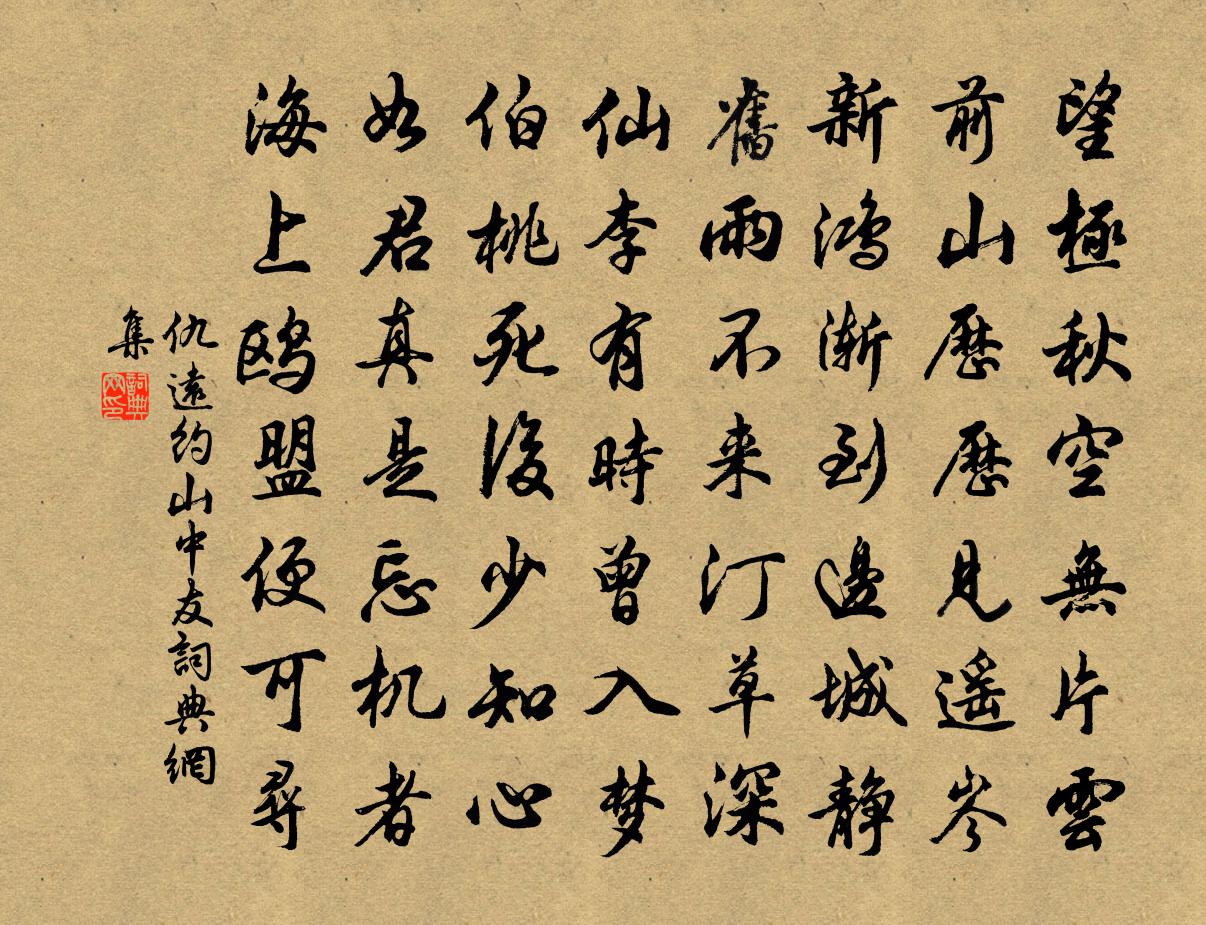 望極秋空無片雲
前山歷歷見遥岑
新鴻漸到邊城静
舊雨不来汀草深
仙李有時曾入梦
伯桃死後少知心
如君真是忘机者
海上鸥盟便可尋
仇遠約山中友詞典網
集
詞典
网印